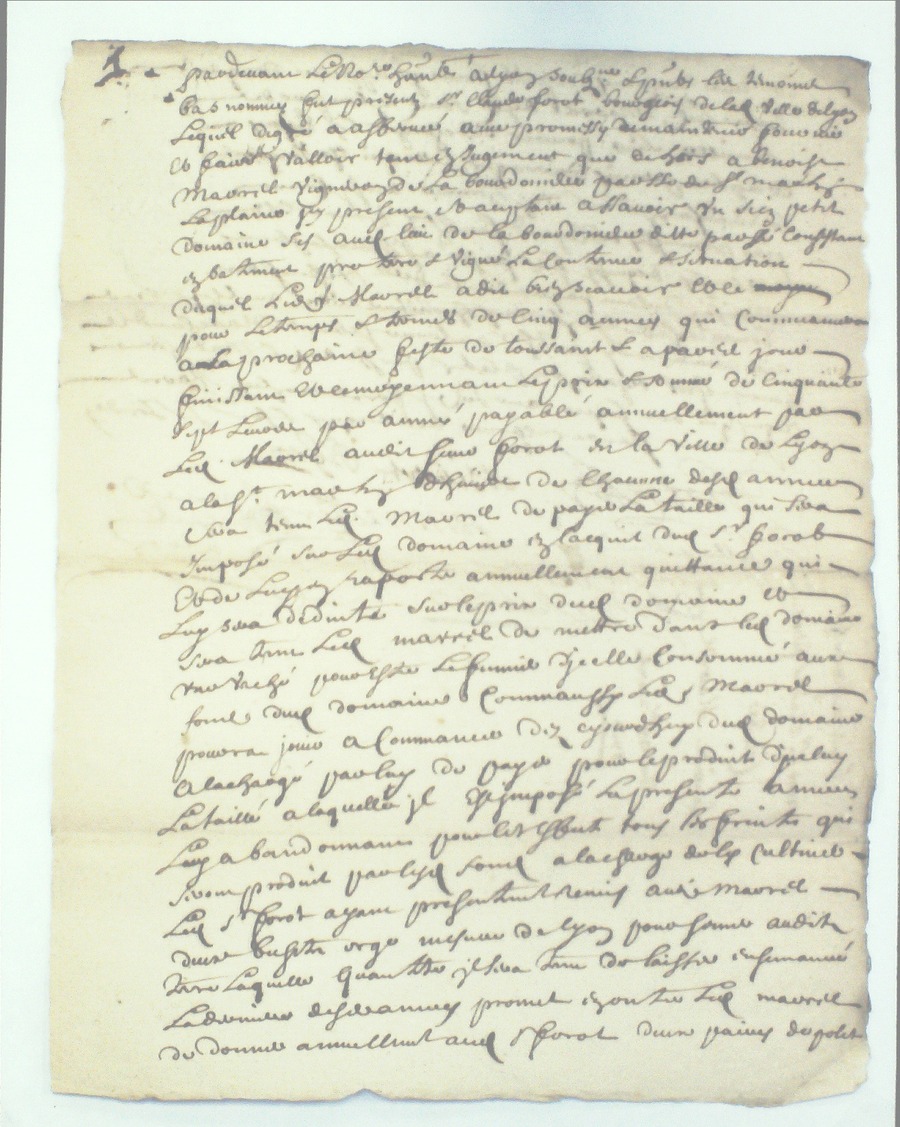 pardevant Le No.re Hered. a Lyon soub.né & pnts les temoins
bas nommes fut present s.r Claude forot bourgeois de lad. ville de Lyon
Lequel de gré a affermé avec promesse de maintenir
et faire valloir tant en Jugement que dehors a benoist
Mavrel vigneron de La bourdonniere parroisse de s.t martin
La plaine jcy present & acceptant assavoir un sien petit
domaine sis aud. lieu de la bourdonniere ditte parroisse Consistant
en batiment pre terre & vigne La Contenue & scituation
duquel Led. Mavrel a dit bien scavoir Et ce
pour Le temps & termes de Cinq années qui Commenceront
a La prochaine feste de toussaint & a pareil jour
finissant Et ce moyennant Le prix & somme de Cinquante
sept Livres par année payable annuellement par
Led. Mavrel audit sieur forot en la ville de Lyon
a la s.t martin d'hiver de chacune desd. années
sera tenu Led. Mavrel de payer La taille qui sera
Imposé sur Led. domaine en lacquit dud. s.r forot
Et de Luy en raporter annuellement quittance qui
Luy sera déduitte sur le prix dud. domaine Et
sera tenu Led. mavrel de mettre dans led. domaine
une vache pour estre Le fumier d'jcelle Consommé aux
fond dud. domaine Comm'aussy Led. Mavrel
pourra jouir a Commancer dez aujourdhuy dud. domaine
a la charge par luy de payer pour le produit d'jceluy
La taille a laquelle jl est jmposé La presente année
Luy abandonnant pour cet effect tous les fruits qui
seront produit par lesd. fonds a la charge de les cultiver
Led. s.r forot ayant presentement remis audit Mavrel
deux bichets orge mesure de Lyon pour semer audit
terre Laquelle quantité jl sera tenu de laisser ensemancé
La derniere desdites années promet en outre Led. mavrel
de donner annuellement aud. s.r forot deux paires de polet